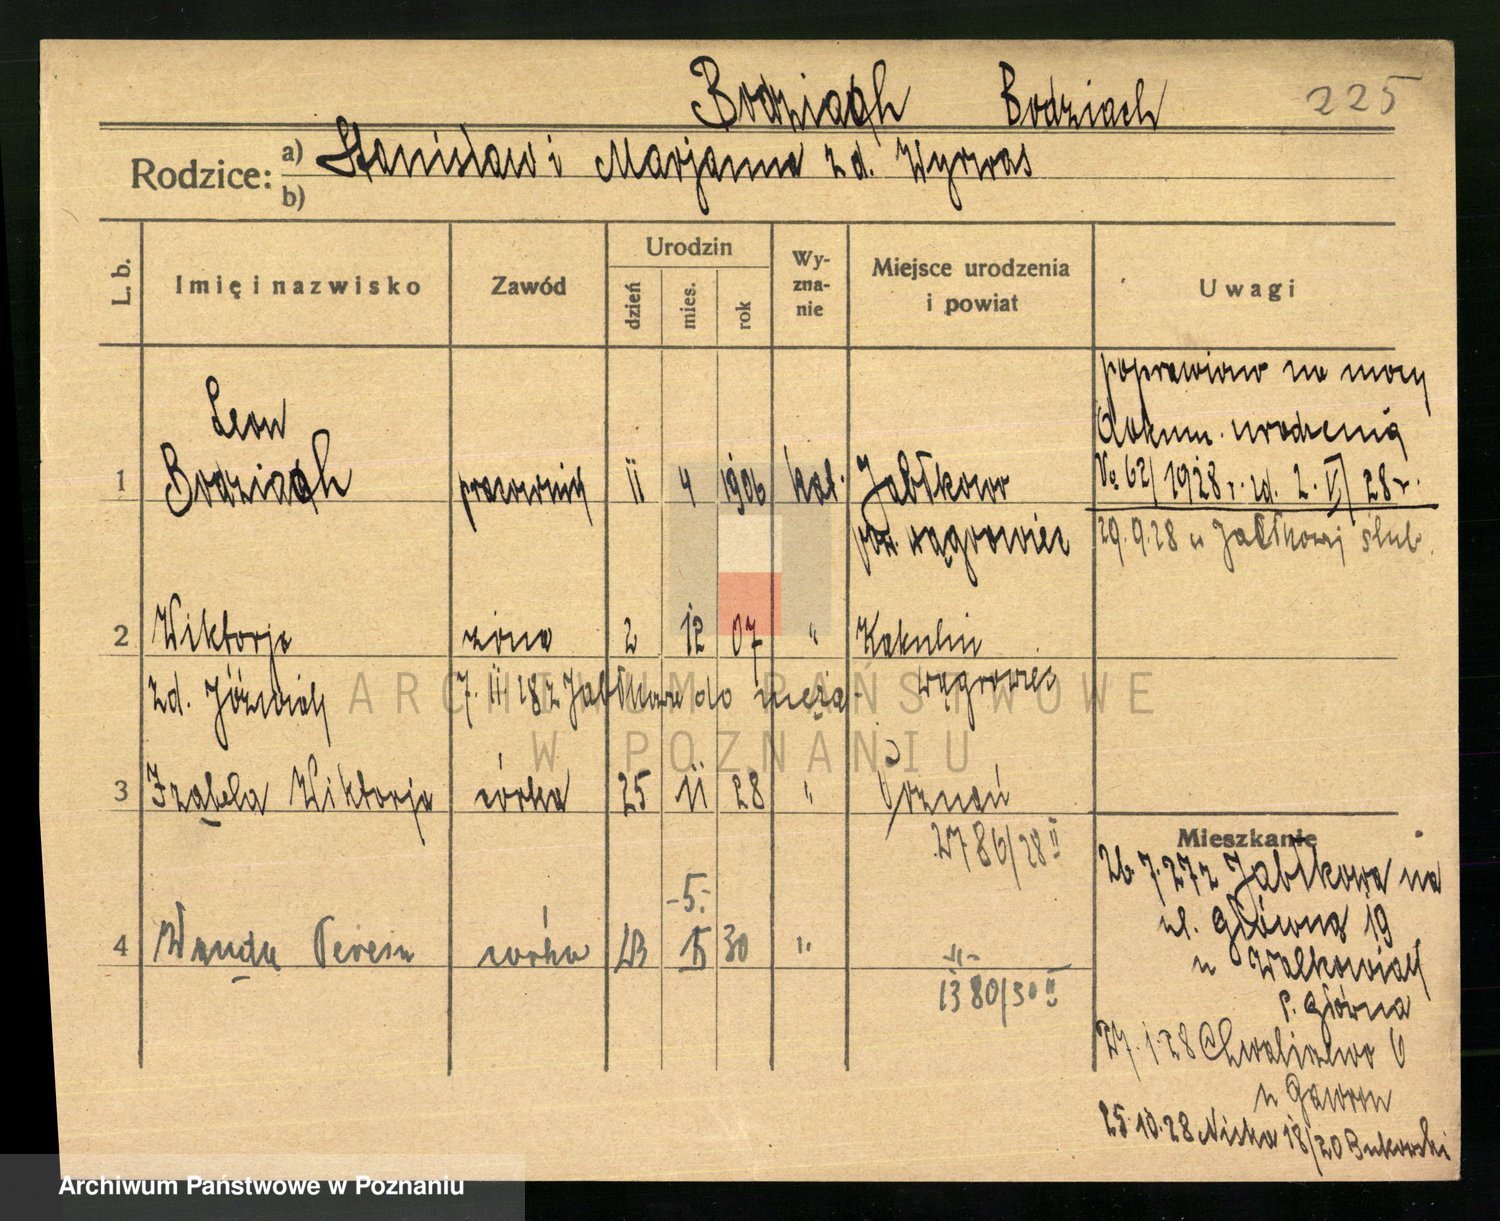 Bodziach Bodziach 225
Rodzice: a) Stanisław i Marjanna z d. Wyrwas
b)
L. b. Imię i nazwisko Zawód Urodzin Wy-zna-nie Miejsce urodzenia i powiat Uwagi
dzień mies. rok
poprawiono na mocy
dokum. urodzenia
No 62/1928 r. zd. 2. VI/28 r.
Leon
1 Bodziach pracownik 11 4 1906 kat. Jabłkowo
pow. wągrowiec
29.9.28 w Jabłkowej ślub.
2 Wiktorja żona 2 12 07 " Kakulin
zd. Jóźwiak 7. 11. 28 z Jabłkowa do męża - wągrowiec
3 Izabela Wiktorja córka 25 11 28 " Poznań
2786/28 II
-5.-
4 Wanda Teresa córka 23 5 30 " -"-
1380/30 II
Mieszkanie
26.7.27 z Jabłkowa na
ul. główna 19
u Walkowiak
p. główna
27.1.28 Chwaliszewo 6
u Gawron
25.10.28 Niska 18/20 Bukowski
ARCHIWUM PAŃSTWOWE
W POZNANIU
Archiwum Państwowe w Poznaniu